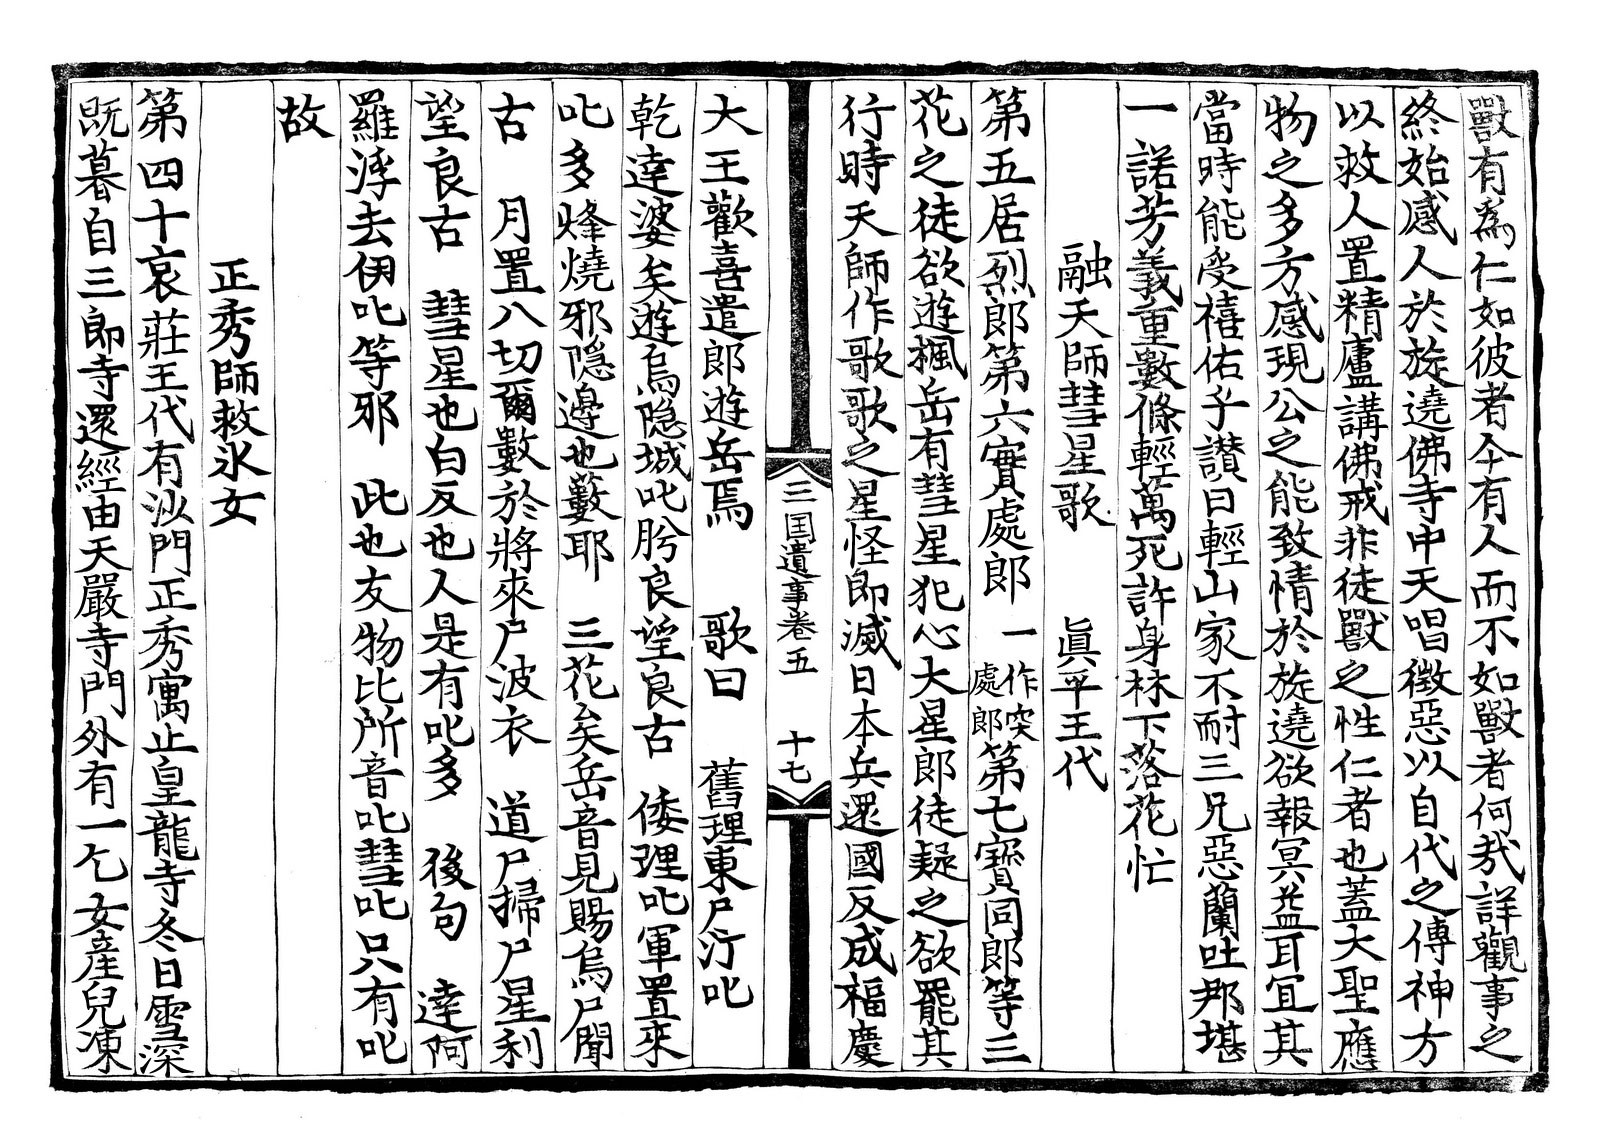 獸有爲仁如彼者今有人而不如獸者何㢤詳觀事之
終始感人於旋遶佛寺中天唱徵惡以自代之傳神方
以救人置精廬講佛戒非徒獸之性仁者也蓋大聖應
物之多方感現公之能致情於旋遶欲報冥益耳宜其
當時能受禧佑乎讃曰輕山家不耐三兄惡蘭吐那堪
一諾芳義重數條輕萬死許身林下落花忙
融天師彗星歌 眞平王代
第五居烈郎第六實處郎 一作突處郎 第七寶同郎等三
花之徒欲遊楓岳有彗星犯心大星郎徒疑之欲罷其
行時天師作歌歌之星怪即滅日本兵還國反成福慶
三国遺事卷五 十七
大王歡喜遣郎遊岳焉 歌曰 舊理東尸汀叱
乾達婆矣遊烏隐城叱肹良望良古 倭理叱軍置來
叱多烽燒邪隐邊也藪耶 三花矣岳音見賜烏尸聞
古 月置八切爾數於將來尸波衣 道尸掃尸星利
望良古 彗星也白反也人是有叱多 後句 達阿
羅浮去伊叱等邪 此也友物比所音叱彗叱只有叱
故
正秀師救氷女
第四十哀莊王代有沙門正秀寓止皇龍寺冬日雪深
既暮自三郎寺還經由天嚴寺門外有一乞女産兒凍